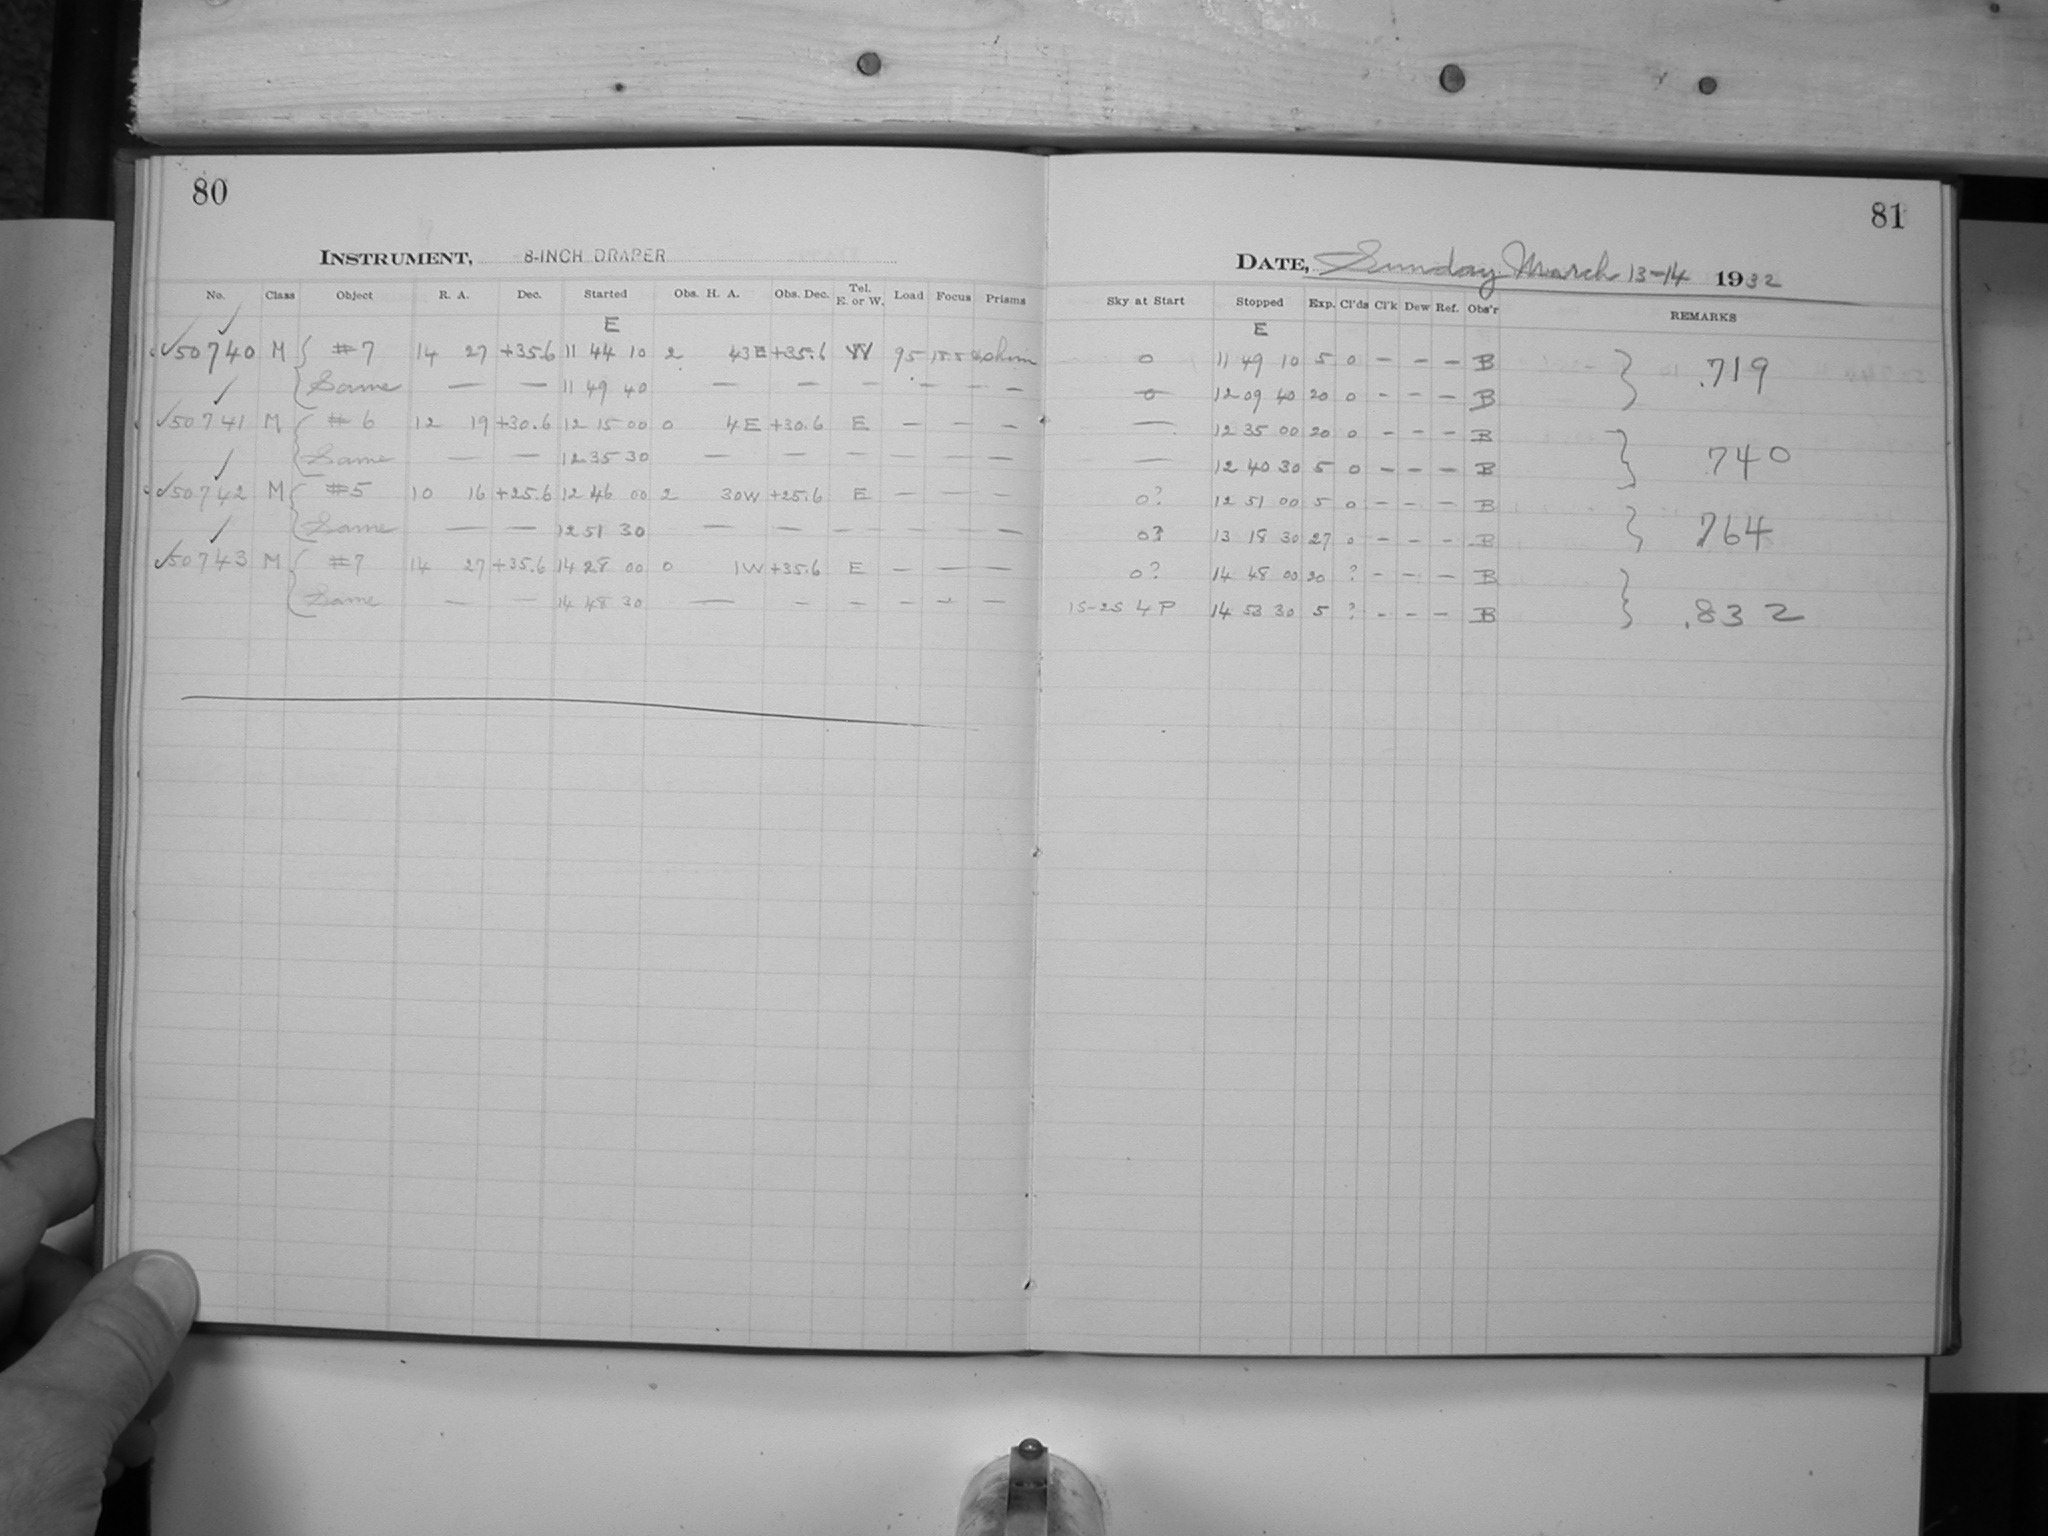 80
INSTRUMENT, 8-INCH DRAPER
No. Class Object R. A. Dec. Started Obs. H. A. Obs. Dec. Tel. E. or W. Load Focus Prisms
E
✓50740 M { #7 14 27 +35.6 11 44 10 2 43E +35.6 W 95
✓ Same — — 11 49 40 — — — — — —
✓50741 M { #6 12 19 +30.6 12 15 00 0 4E +30.6 E — — —
✓ Same — — 12 35 30 — — — — — —
✓50742 M { #5 10 16 +25.6 12 46 00 2 30W +25.6 E — — —
✓ Same — — 12 51 30 — — — — — —
✓50743 M { #7 14 27 +35.6 14 28 00 0 1W +35.6 E — — —
Same — — 14 48 30 — — — — — —
81
DATE, Sunday March 13-14 1932
Sky at Start Stopped Exp. Cl'ds Cl'k Dew Ref. Obs'r REMARKS
E
0 11 49 10 5 0 — — — B } .719
0 12 09 40 20 0 — — — B
— 12 35 00 20 0 — — — B } .740
— 12 40 30 5 0 — — — B
0? 12 51 00 5 0 — — — B } .764
0? 13 18 30 27 0 — — — B
0? 14 48 00 20 ? — — — B } .832
15-25 4P 14 53 30 5 ? — — — B